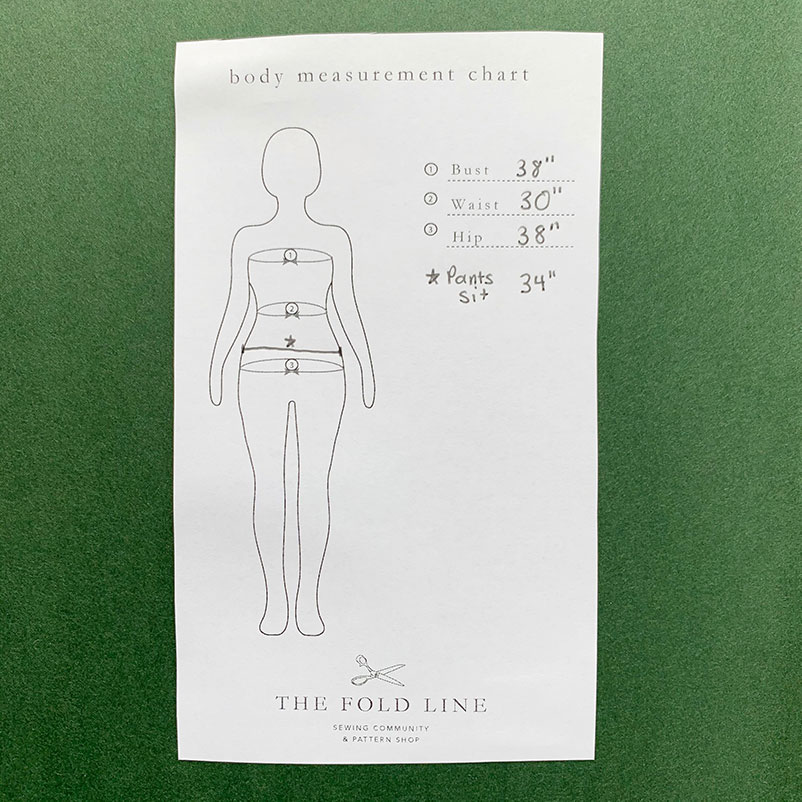 body measurement chart
① Bust 38"
② Waist 30"
③ Hip 38"
★ Pants 34"
Sit
1
2
★
3
THE FOLD LINE
SEWING COMMUNITY
& PATTERN SHOP